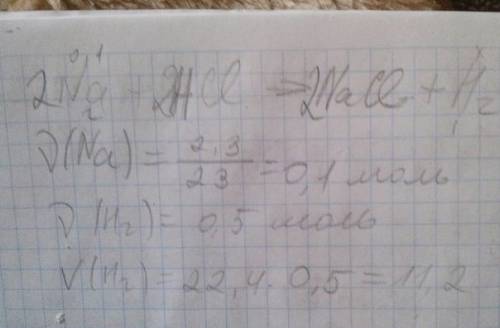 0,1 x
2Na + 2HCl = 2NaCl + H₂
2 1
ν(Na) = 2,3 / 23 = 0,1 моль
ν(H₂) = 0,5 моль
V(H₂) = 22,4 · 0,5 = 11,2